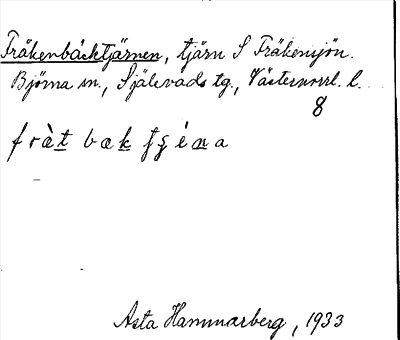 Fräkenbäcktjärnen, tjärn S Fräkensjön.
Björna sn., Själevads tg., Västernorrl. l.
8
fràt bæk tʂéna
Asta Hammarberg, 1933